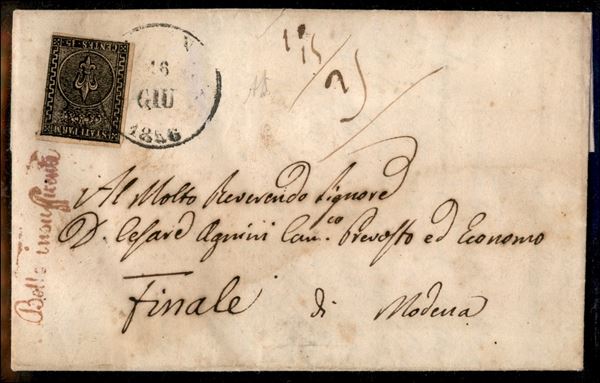 CENTES. 15
STATI PARM.
16
GIU
1856
15
25
Bollo insufficiente
Al Molto Reverendo Signore
D. Cesare Agnini Can.co Prevosto ed Economo
Finale di Modena